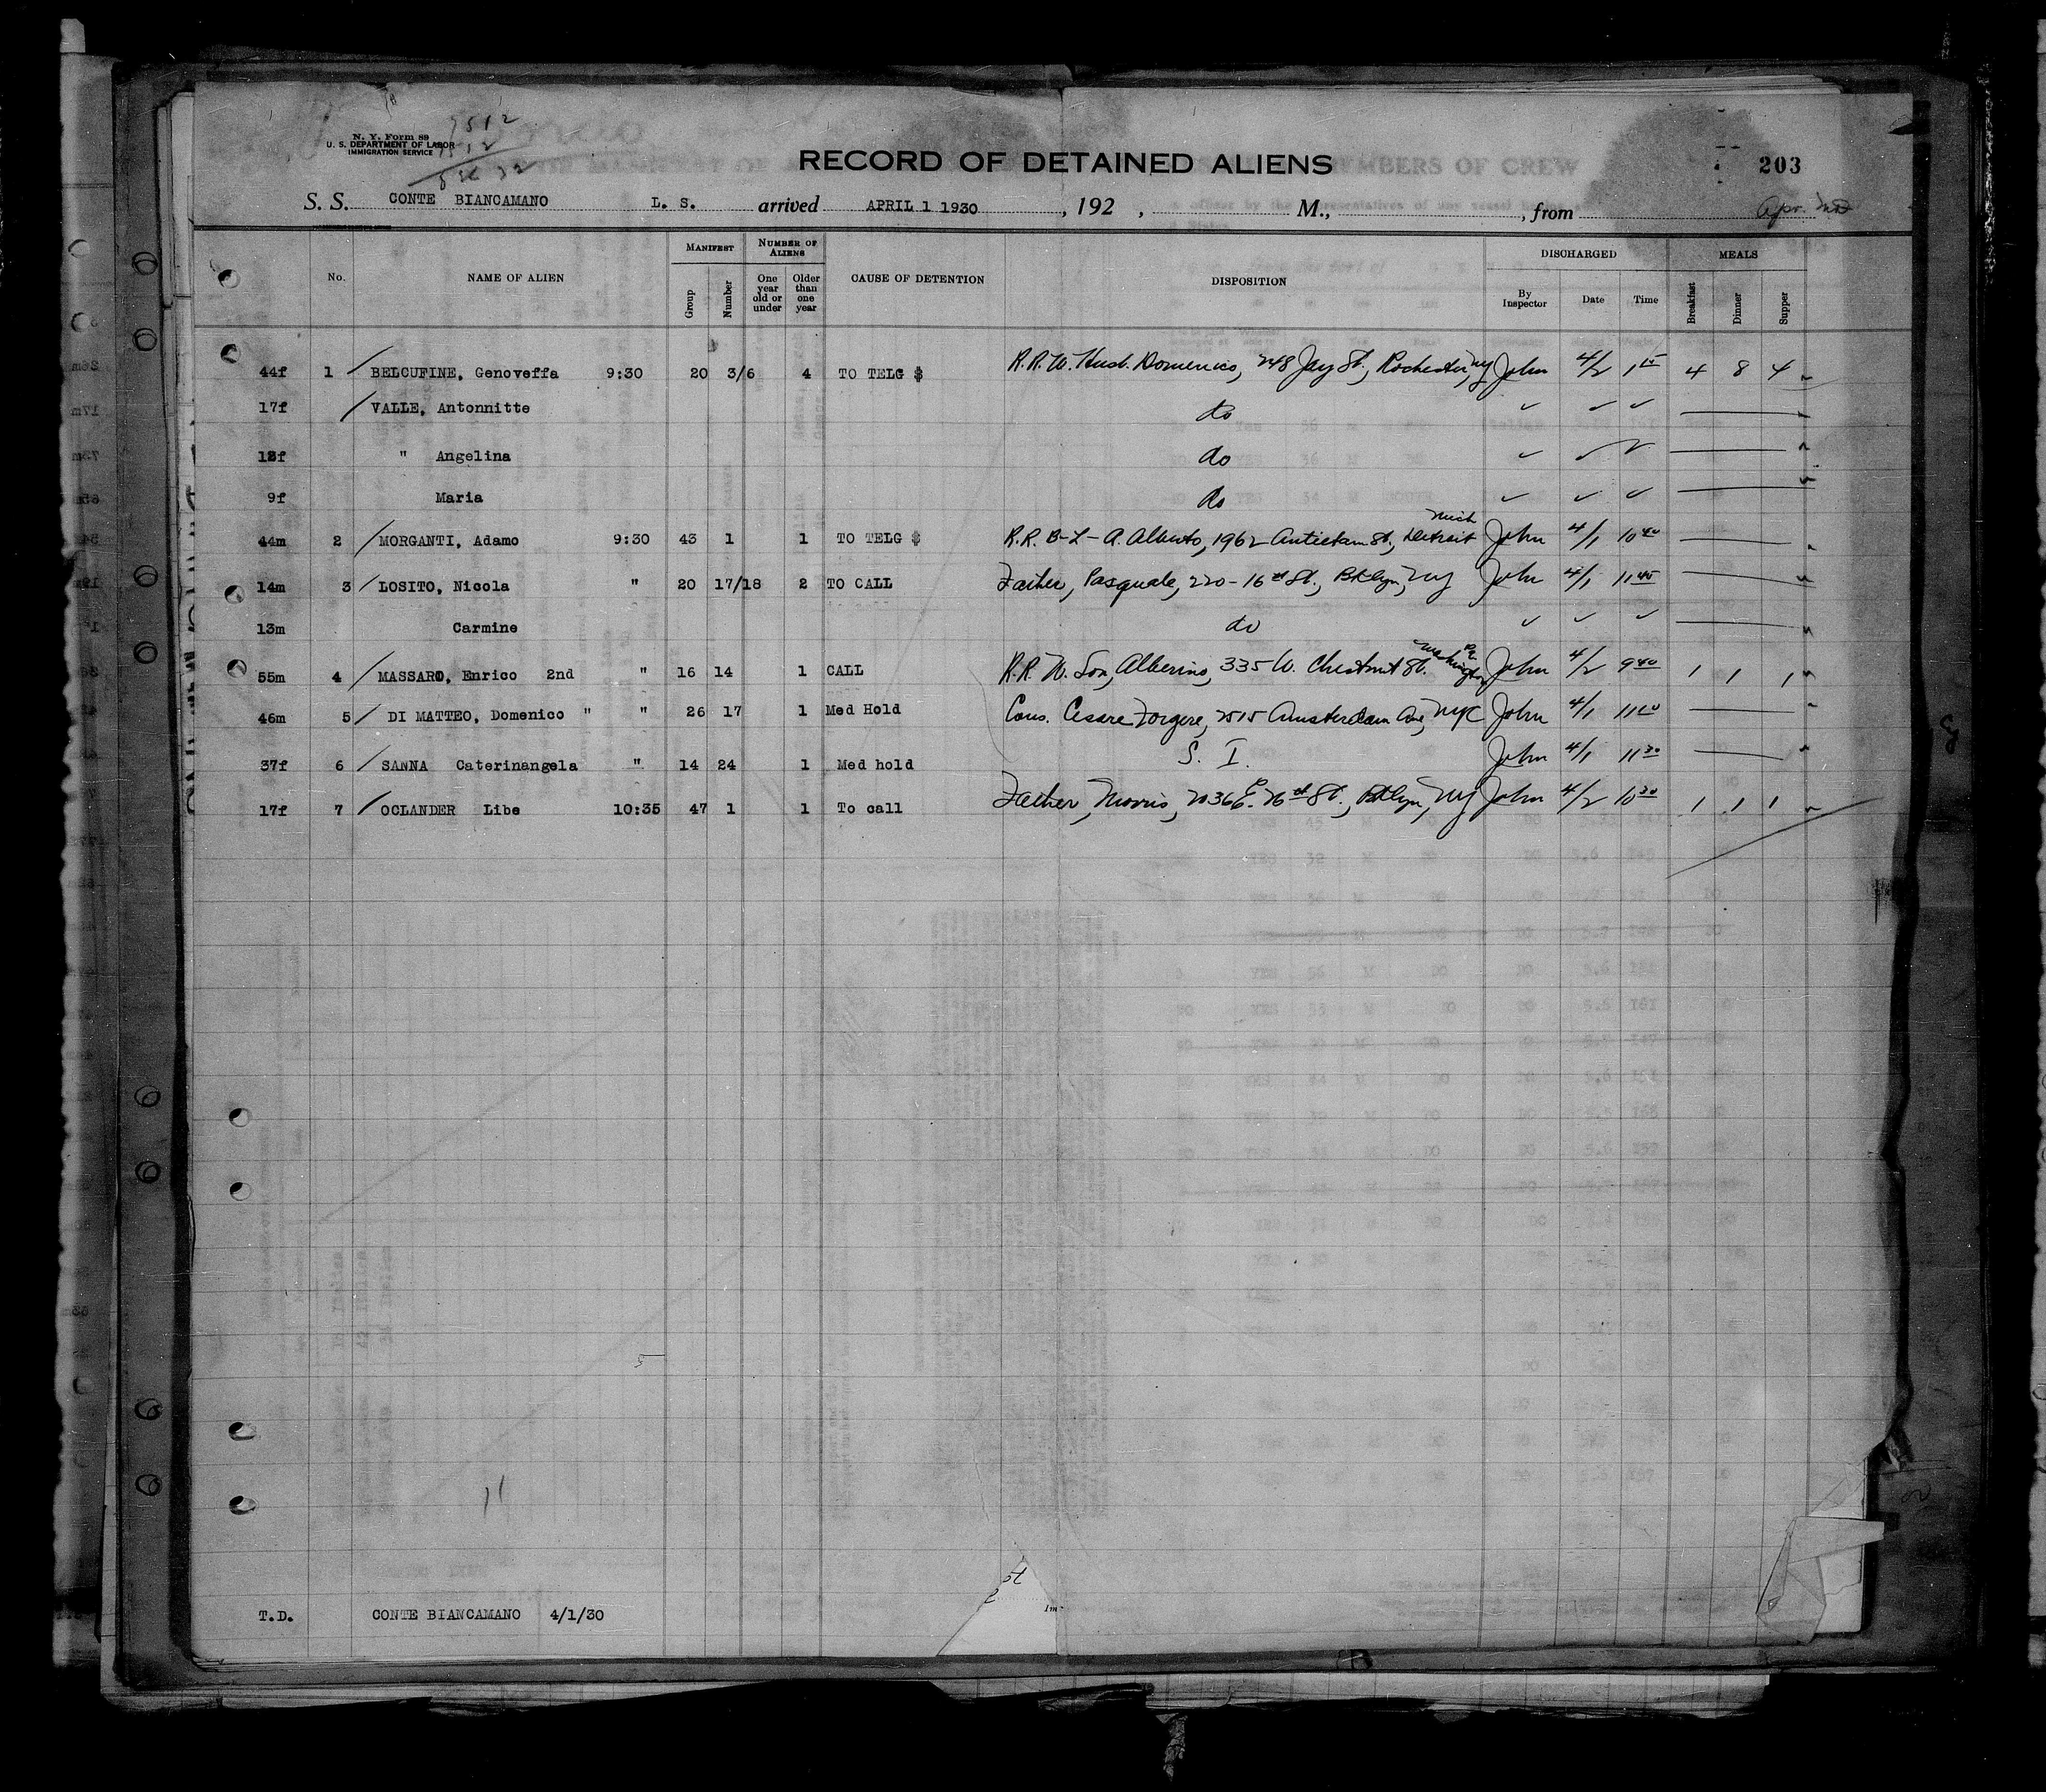 N. Y. Form 89
U. S. DEPARTMENT OF LABOR
IMMIGRATION SERVICE
RECORD OF DETAINED ALIENS
203
S. S. CONTE BIANCAMANO L. S. arrived APRIL 1 1930 , 192 , M., , from
No. NAME OF ALIEN MANIFEST Group Number NUMBER OF ALIENS One year old or under Older than one year CAUSE OF DETENTION DISPOSITION DISCHARGED By Inspector Date Time MEALS Breakfast Dinner Supper
44f 1 / BELCUFINE, Genoveffa 9:30 20 3/6 4 TO TELG $ R.R.W. Husb. Domenico, 248 Jay St., Rochester, NY John 4/2 1 15 4 8 4
17f / VALLE, Antonnitte do ✓ ✓ ✓
12f " Angelina do ✓ ✓ ✓
9f Maria do ✓ ✓ ✓
44m 2 / MORGANTI, Adamo 9:30 43 1 1 TO TELG $ R.R. B-L- A. Alberto, 1962 Antietam St., Detroit Mich John 4/1 10 40
14m 3 / LOSITO, Nicola " 20 17/18 2 TO CALL Father, Pasquale, 220-16th St., Bklyn, NY John 4/1 11 45
13m Carmine do ✓ ✓ ✓
55m 4 / MASSARO, Enrico 2nd " 16 14 1 CALL R.R. W. Son, Alberino, 335 W. Chestnut St. Washington Pa. John 4/2 9 40 1 1 1
46m 5 / DI MATTEO, Domenico " " 26 17 1 Med Hold Cous. Cesare Forgere, 2515 Amsterdam Ave, NYC John 4/1 11
37f 6 / SANNA Caterinangela " 14 24 1 Med hold S. I. John 4/1 11 30
17f 7 / OCLANDER Libe 10:35 47 1 1 To call Father, Morris, 2036 E. 26th St., Bklyn, NY John 4/2 10 30 1 1 1
11
T.D. CONTE BIANCAMANO 4/1/30